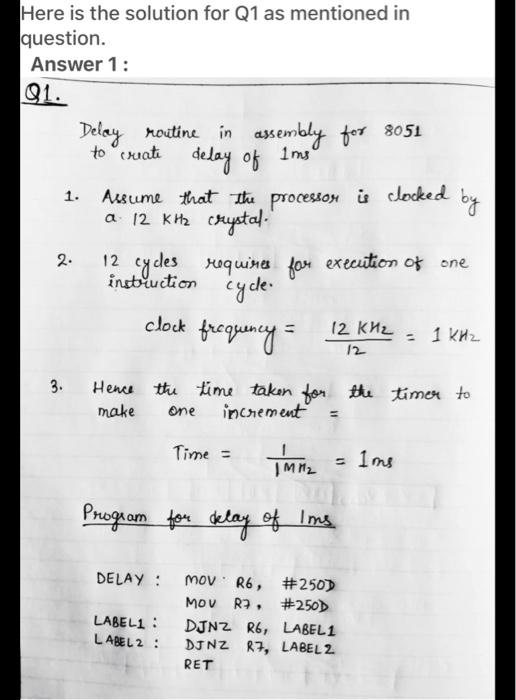 Here is the solution for Q1 as mentioned in
question.
Answer 1 :
Q1.
Delay routine in assembly for 8051
to create delay of 1ms
1. Assume that the processor is clocked by
a 12 KHz crystal.
2. 12 cycles requires for execution of one
instruction cycle.
clock frequency = 12 KHz / 12 = 1 KHz
3. Hence the time taken for the timer to
make one increment =
Time = 1 / 1MHz = 1ms
Program for delay of 1ms
DELAY : MOV R6, #250D
MOV R7, #250D
LABEL1 : DJNZ R6, LABEL1
LABEL2 : DJNZ R7, LABEL2
RET